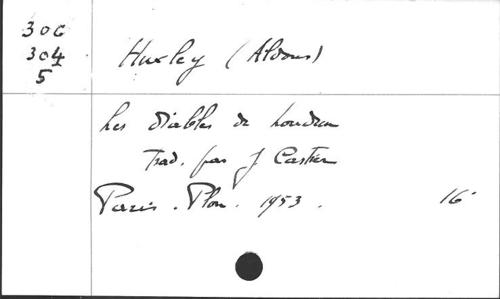 306
304
5
Huxley (Aldous)
Les Diables de Loudun
Trad. par J. Castier
Paris. Plon. 1953.
16°